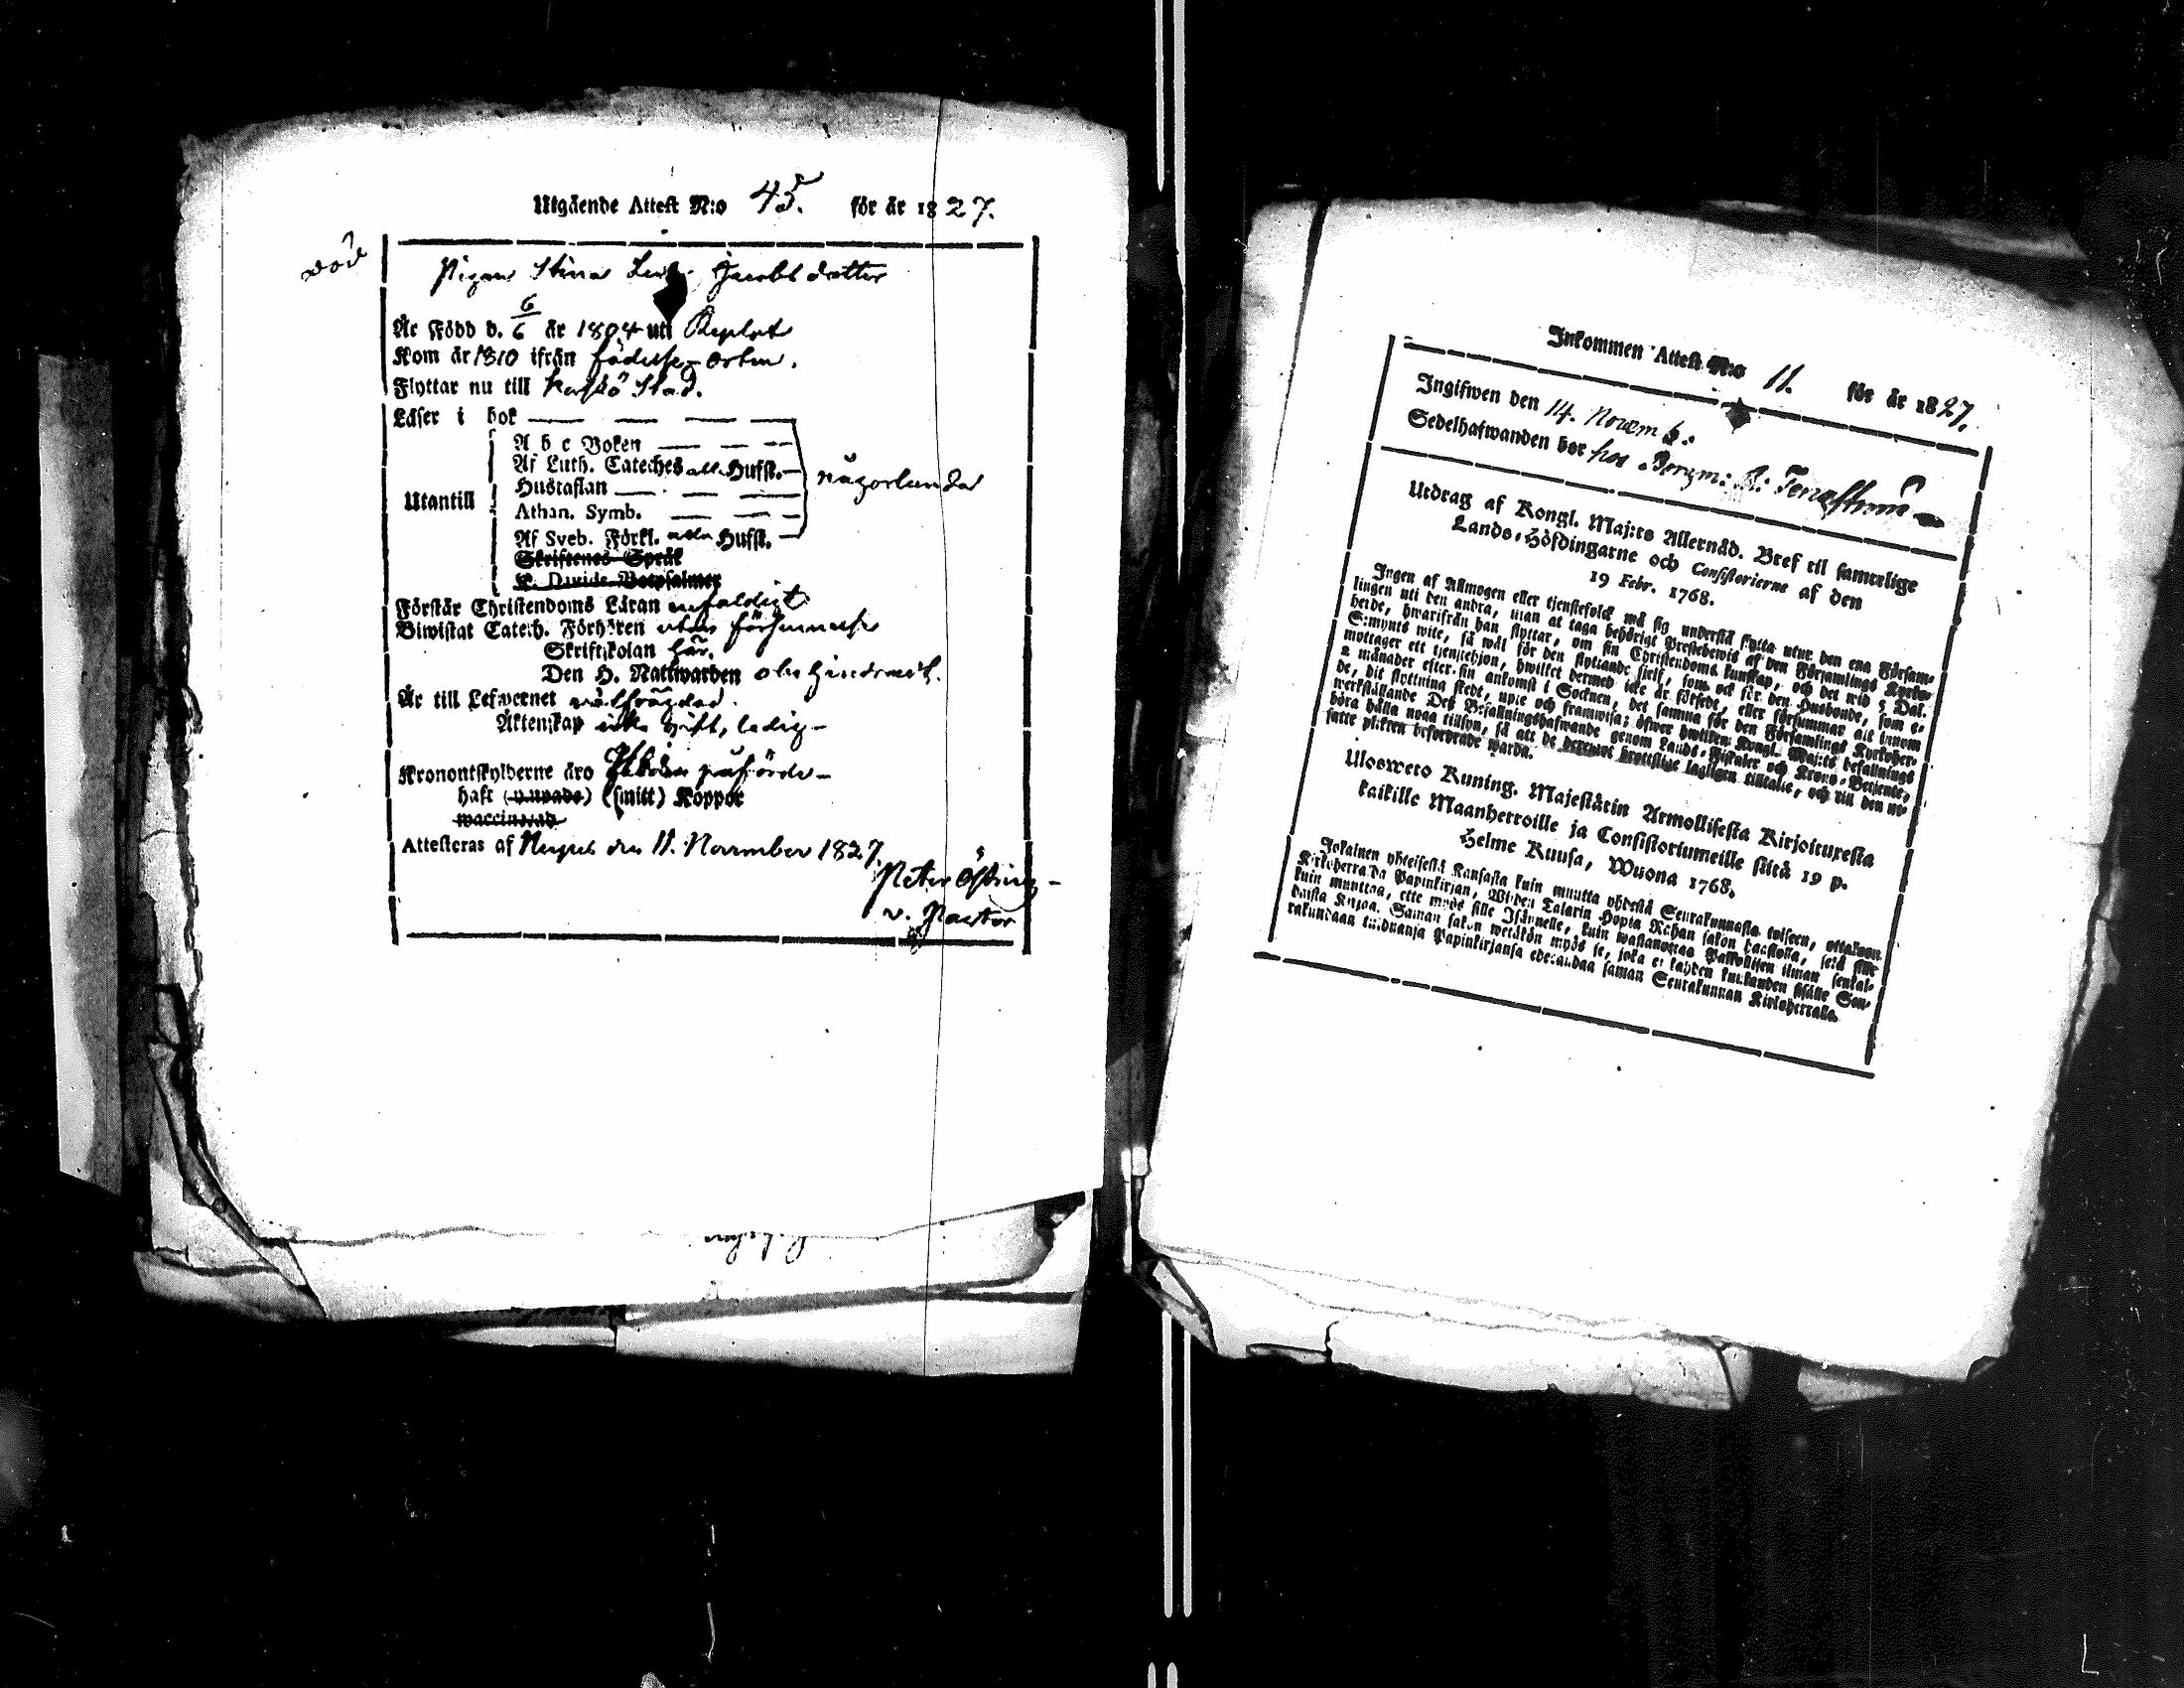 Utgående Attest N:o 45. för år 1827.
död
Pigan Stina Jacobsdotter
Är Född d. 6/6 år 1804 uti Replot
Kom år 1810 ifrån födelse-orten.
Flyttar nu till Kaskö Stad.
Läser i bok
A b c Boken
Af Luth. Cateches alla Hufst.
någorlunda
Hustaflan
Utantill
Athan. Symb.
Af Sveb. Förkl. alla Hufst.
Skriftenes Språk
K. Davids Botpsalmer
Förstår Christendoms Läran enfaldigt
Biwistat Catech. Förhören utan försummelse
Skriftskolan här.
Den H. Nattwarden obehindrad.
Är till Lefwernet wälfrägdad.
Äktenskap icke gift, ledig
Kronoutskylderne äro påförde
haft (ympade) (smitt) Koppor
waccinerad
Attesteras af den 11. November 1827.
Peter Östring
v. Pastor
Inkommen Attest N:o 11. för år 1827.
Ingifwen den 14. Novemb.
Sedelhafwanden bor hos Borgm:
Utdrag af Kongl. Maj:ts Allernåd. Bref til samtelige
Lands-Höfdingarne och Consistorierne af den
19 Febr. 1768.
Ingen af Allmogen eller tjenstefolck må sig understå flytta utur den ena Försam-
lingen uti den andra, utan at taga behörigt Prestebewis af den Församlings Kyrko-
herde, hwarifrån han flyttar, om sin Christendoms kunskap, och det wid 5 Dal.
S:mynts wite, så wäl för den flyttande sjelf, som ock för den Husbonde, som e-
mottager ett tjenstehjon, hwilket dermed icke är försedt, eller försummar att innom
2 månader efter sin ankomst i Socknen, det samma för den Församlings Kyrkoher-
de, dit flyttning skedt, upte och framwisa; öfwer hwilken Kongl. Maj:ts befallnings
werkställande Dess Befallningshafwande genom Lands-Fiskaler och Krono-Betjente,
böra hålla noga tillsyn, så att de deremot brottslige lagligen tilltalte, och till den ut-
satte plikten befordrade warda.
Ulosweto Kuning. Majestätin Armollisesta Kirjoituxesta
kaikille Maanherroille ja Consistoriumeille siitä 19 p.
Helme Kuusa, Wuona 1768.
Jokainen yhteisestä Kansasta kuin muutta yhdestä Seurakunnasta toiseen, ottakoon
Kirkoherralda Papinkirjan, Wiiden Talarin Hopia Rahan sakon haastolla, sekä sille
kuin muuttaa, ette myös sille Isännelle, kuin wastanottaa Palkollisen ilman senkal-
daista Kirjaa. Saman sakon wetäkön myös se, joka ei kahden kuukauden sisälle Seu-
rakundaan tulduanja Papinkirjansa edesandaa saman Seurakunnan Kirkoherralla.